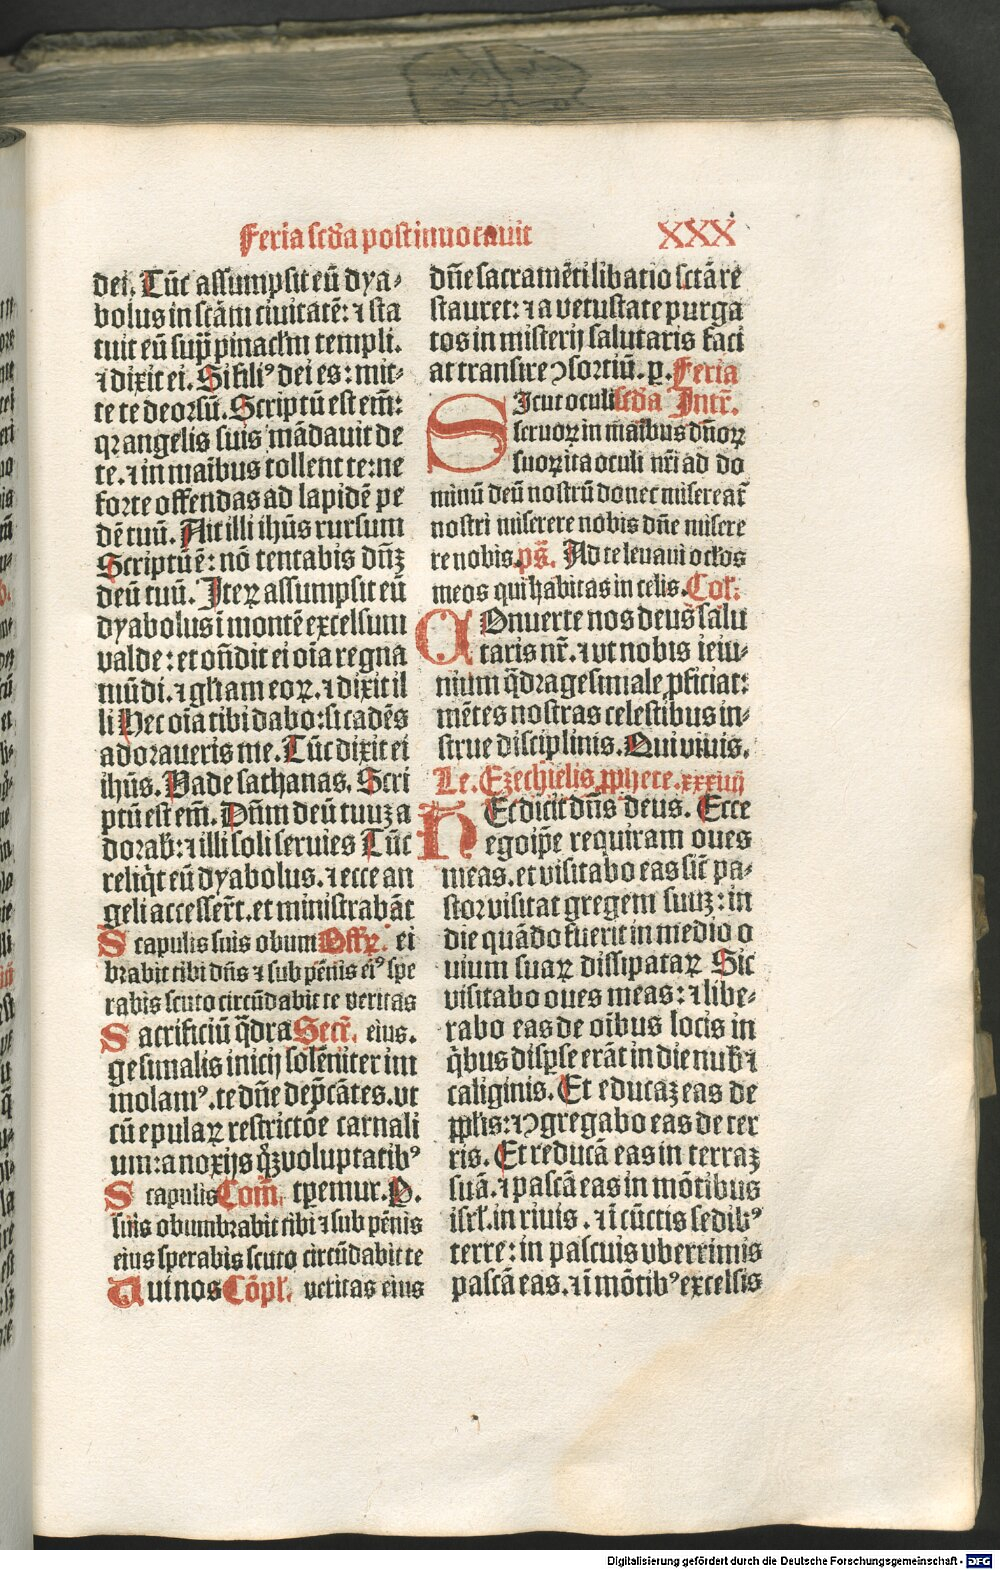 Feria scd̄a post inuocauit XXX
dei. Tūc assumpsit eū dya⸗
bolus in sctām ciuitatē: ⁊ sta
tuit eū sup̄ pinaclm̄ templi.
⁊ dixit ei. Si filiꝰ dei es: mit⸗
te te deorsū. Scriptū est em̄:
qꝛ angelis suis mādauit de
te. ⁊ in maībus tollent te: ne
forte offendas ad lapidē pe
dē tuū. Ait illi ihūs rursum
Scriptū ē: nō tentabis dn̄ꝫ
deū tuū. Iteꝝ assumpsit eū
dyabolus ī montē excelsum
valde: et on̄dit ei oīa regna
mūdi. ⁊ gl̄iam eoꝝ. ⁊ dixit il
li Hec oīa tibi dabo: si cadēs
adoraueris me. Tūc dixit ei
ihūs. Vade sathanas. Scri
ptū est em̄. Dn̄m deū tuuꝫ a
dorab̄: ⁊ illi soli seruies Tūc
reliq̄t eū dyabolus. ⁊ ecce an
geli accesser̄t. et ministrabāt
Scapulis suis obum Offꝝ. ei
brabit tibi dn̄s ⁊ sub pēnis eiꝰ spe
rabis scuto circūdabit te veritas
Sacrificiū q̄dra Secr̄. eius.
gesimalis inicij solēniter im
molamꝰ. te dn̄e dep̄cātes. vt
cū epulaꝝ restrictōe carnali
um: a noxijs q̄ꝫ voluptatibꝰ
Scapulis Com̄. tꝑemur. P.
suis obumbrabit tibi ⁊ sub pēnis
eius sperabis scuto circūdabit te
Tui nos Cōpl̄. veritas eius
dn̄e sacramēti libatio sctā re
stauret: ⁊ a vetustate purga
tos in misterij salutaris faci
at transire ↄsortiū. p. Feria
Sicut oculi scd̄a Intr̄.
seruoꝝ in maībus dn̄oꝝ
suoꝝ ita oculi nr̄i ad do
minū deū nostrū donec misereat̄
nostri miserere nobis dn̄e misere
re nobis. ps̄. Ad te leuaui oclos
meos qui habitas in celis. Col̄.
COnuerte nos deus salu
taris nr̄. ⁊ vt nobis ieiu⸗
nium q̄dragesimale ꝓficiat:
mētes nostras celestibus in⸗
strue disciplinis. Qui viuis.
Le. Ezechielis ꝓphete. xxxiiij
HEc dicit dn̄s deus. Ecce
ego ip̄e requiram oues
meas. et visitabo eas sic̄ pa⸗
stor visitat gregem suuꝫ: in
die quādo fuerit in medio o
uium suaꝝ dissipataꝝ Sic
visitabo oues meas: ⁊ libe⸗
rabo eas de oībus locis in
q̄bus disp̄se erāt in die nub̄ ⁊
caliginis. Et educaꝫ eas de
pp̄lis: ⁊ ↄgregabo eas de ter
ris. Et reducā eas in terraꝫ
suā. ⁊ pascā eas in mōtibus
isrl̄. in riuis. ⁊ ī cūctis sedibꝰ
terre: in pascuis vberrimis
pascā eas. ⁊ ī mōtibꝰ excelsis
Digitalisierung gefördert durch die Deutsche Forschungsgemeinschaft - DFG